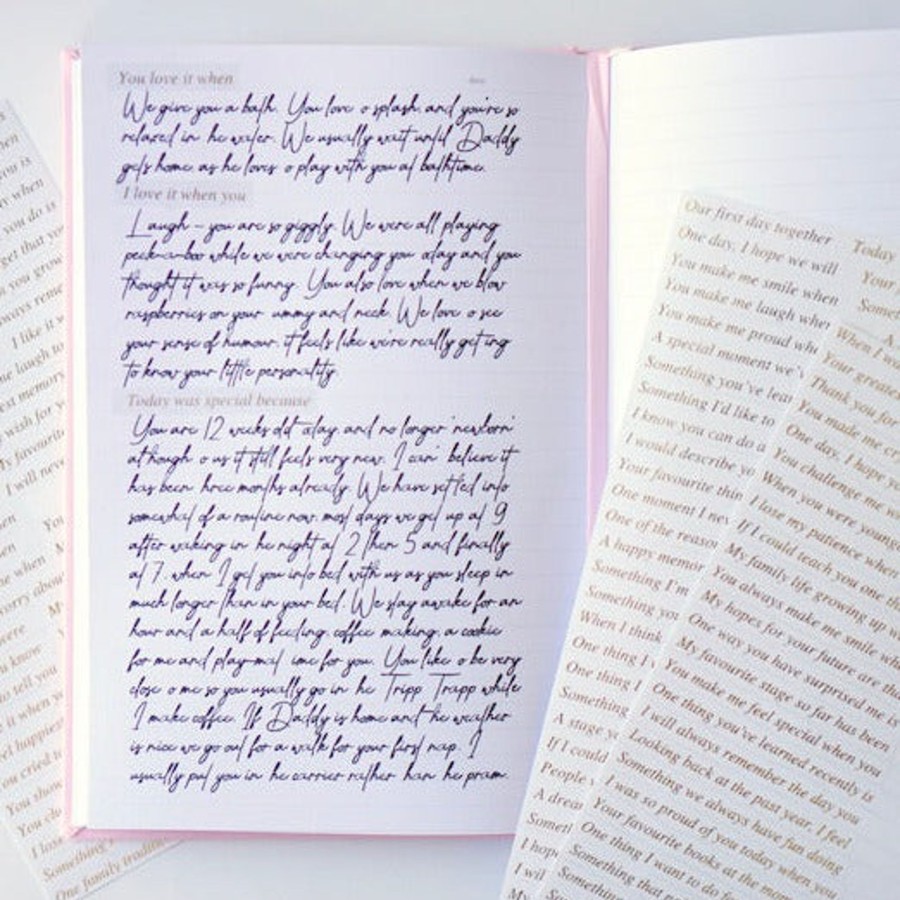 You love it when
We give you a bath. You love to splash and you're so
relaxed in the water. We usually wait until Daddy
gets home as he loves to play with you at bathtime.
I love it when you
Laugh – you are so giggly. We were all playing
peek-a-boo while we were changing you today and you
thought it was so funny. You also love when we blow
raspberries on your tummy and neck. We love to see
your sense of humour, it feels like we're really getting
to know your little personality.
Today was special because
You are 12 weeks old today and no longer 'newborn'
although to us it still feels very new. I can't believe it
has been three months already. We have settled into
somewhat of a routine now, most days we get up at 9
after waking in the night at 2 then 5 and finally
at 7, when I get you into bed with us as you sleep in
much longer than in your bed. We stay awake for an
hour and a half of feeding, coffee making, a cookie
for me and play-mat time for you. You like to be very
close to me so you usually go in the Tripp Trapp while
I make coffee. If Daddy is home and the weather
is nice we go out for a walk for your first nap. I
usually put you in the carrier rather than the pram.
Our first day together
One day, I hope we will
You make me smile when
You make me laugh when
You make me proud
A special moment
Something you've
Something I'd like to
I know you can do a
I would describe
Your favourite
One moment I
One of the
A happy
Something I'm
Something you
When I think
One thing I
One thing I
Something
A stage
If I could
People
Today
Your
When I
Your
Thank you for
You made me
One day, I hope
You challenge me
When you were
I lose my patience when
If I could teach you one
My family life growing up
You always make me smile
My hopes for your future are
One way you have surprised me is
My favourite stage so far has been
You make me feel special when you
One thing you've learned recently is
I will always remember the day you
Looking back at the past year, I feel
Something we always have fun doing
I was so proud of you today when you
Your favourite books at the
One thing I want to do
Something that
Something
One family